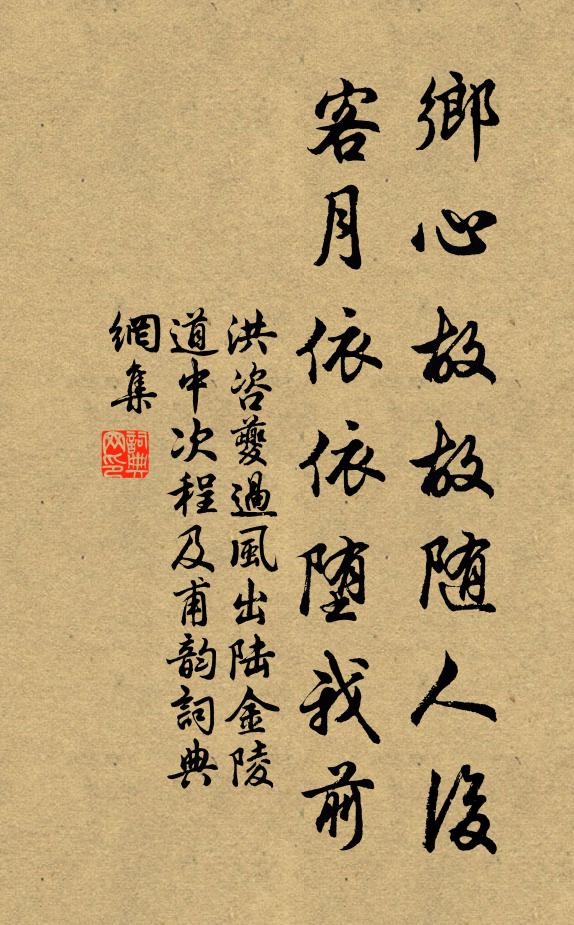 鄉心故故随人後
客月依依堕我前
洪咨夔過風出陆金陵
道中次程及甫韵詞典
網集
詞典网印